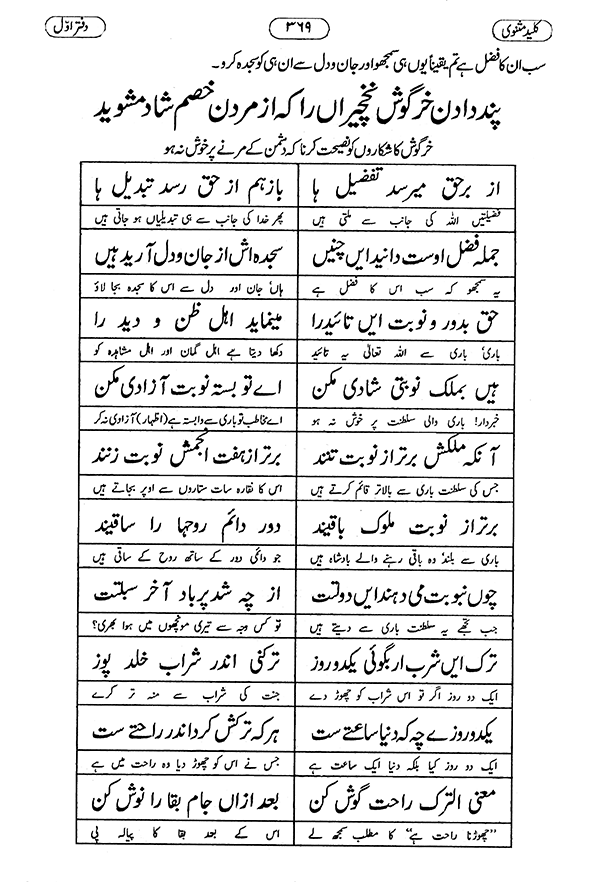 کلید مثنوی ۳۶۹ دفتر اوّل
سب ان کا فضل ہے تم یقیناً یوں ہی سمجھو اور جان و دل سے ان ہی کو سجدہ کرو۔
پند دادن خرگوش نخچیراں را کہ از مردن خصم شاد مشوید
خرگوش کا شکاروں کو نصیحت کرنا کہ دشمن کے مرنے پر خوش نہ ہو
از برِ حق میرسد تفضیل ہا بازہم از حق رسد تبدیل ہا
فضیلتیں اللہ کی جانب سے ملتی ہیں پھر خدا کی جانب سے ہی تبدیلیاں ہو جاتی ہیں
جملہ فضل اوست دانید ایں چنیں سجدہ اش از جان و دل آرید ہیں
یہ سمجھو کہ سب اس کا فضل ہے ہاں جان اور دل سے اس کا سجدہ بجا لاؤ
حق بدور و نوبت ایں تائید را مینماید اہل ظن و دید را
باری باری سے اللہ تعالٰی یہ تائید دکھا دیتا ہے اہل گمان اور اہل مشاہدہ کو
ہیں بملک نوبتی شادی مکن اے تو بستہ نوبت آزادی مکن
خبردار! باری والی سلطنت پر خوش نہ ہو اے مخاطب تو باری سے وابستہ ہے (اظہار) آزادی نہ کر
آنکہ ملکش برتر از نوبت تنند برتر از ہفت انجمش نوبت زنند
جس کی سلطنت باری سے بالاتر قائم کرتے ہیں اس کا نقارہ سات ستاروں سے اوپر بجاتے ہیں
برتر از نوبت ملوک باقیند دور دائم روحہا را ساقیند
باری سے بلند وہ باقی رہنے والے بادشاہ ہیں جو دائمی دور کے ساتھ روح کے ساقی ہیں
چوں نبوبت می دہند ایں دولتت از چہ شد پرباد آخر سبلتت
جب تجھے یہ سلطنت باری سے دیتے ہیں تو کس وجہ سے تیری مونچھوں میں ہوا بھری؟
ترک ایں شرب ار بگوئی یکدو روز ترکنی اندر شراب خلد پوز
ایک دو روز اگر تو اس شراب کو چھوڑ دے جنت کی شراب سے منہ تر کرے
یکدو روزے چہ کہ دنیا ساعتے ست ہر کہ ترکش کرد اندر راحتے ست
ایک دو روز کیا بلکہ دنیا ایک ساعت ہے جس نے اس کو چھوڑ دیا وہ راحت میں ہے
معنی الترک راحت گوش کن بعد ازاں جام بقا را نوش کن
"چھوڑنا راحت ہے" کا مطلب سمجھ لے اس کے بعد بقا کا پیالہ پی